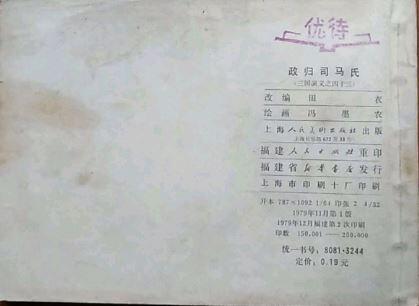 优待
政归司马氏
(三国演义之四十三)
改编 田 衣
绘画 冯墨农
上海人民美术出版社出版
上海长乐路672弄33号
福建人民出版社重印
福建省新华书店发行
上海市印刷十厂印刷
开本 787×1092 1/64 印张 2 4/32
1979年11月第1版
1979年12月福建第2次印刷
印数 150,001——200,000
统一书号: 8081·3244
定价: 0.19元